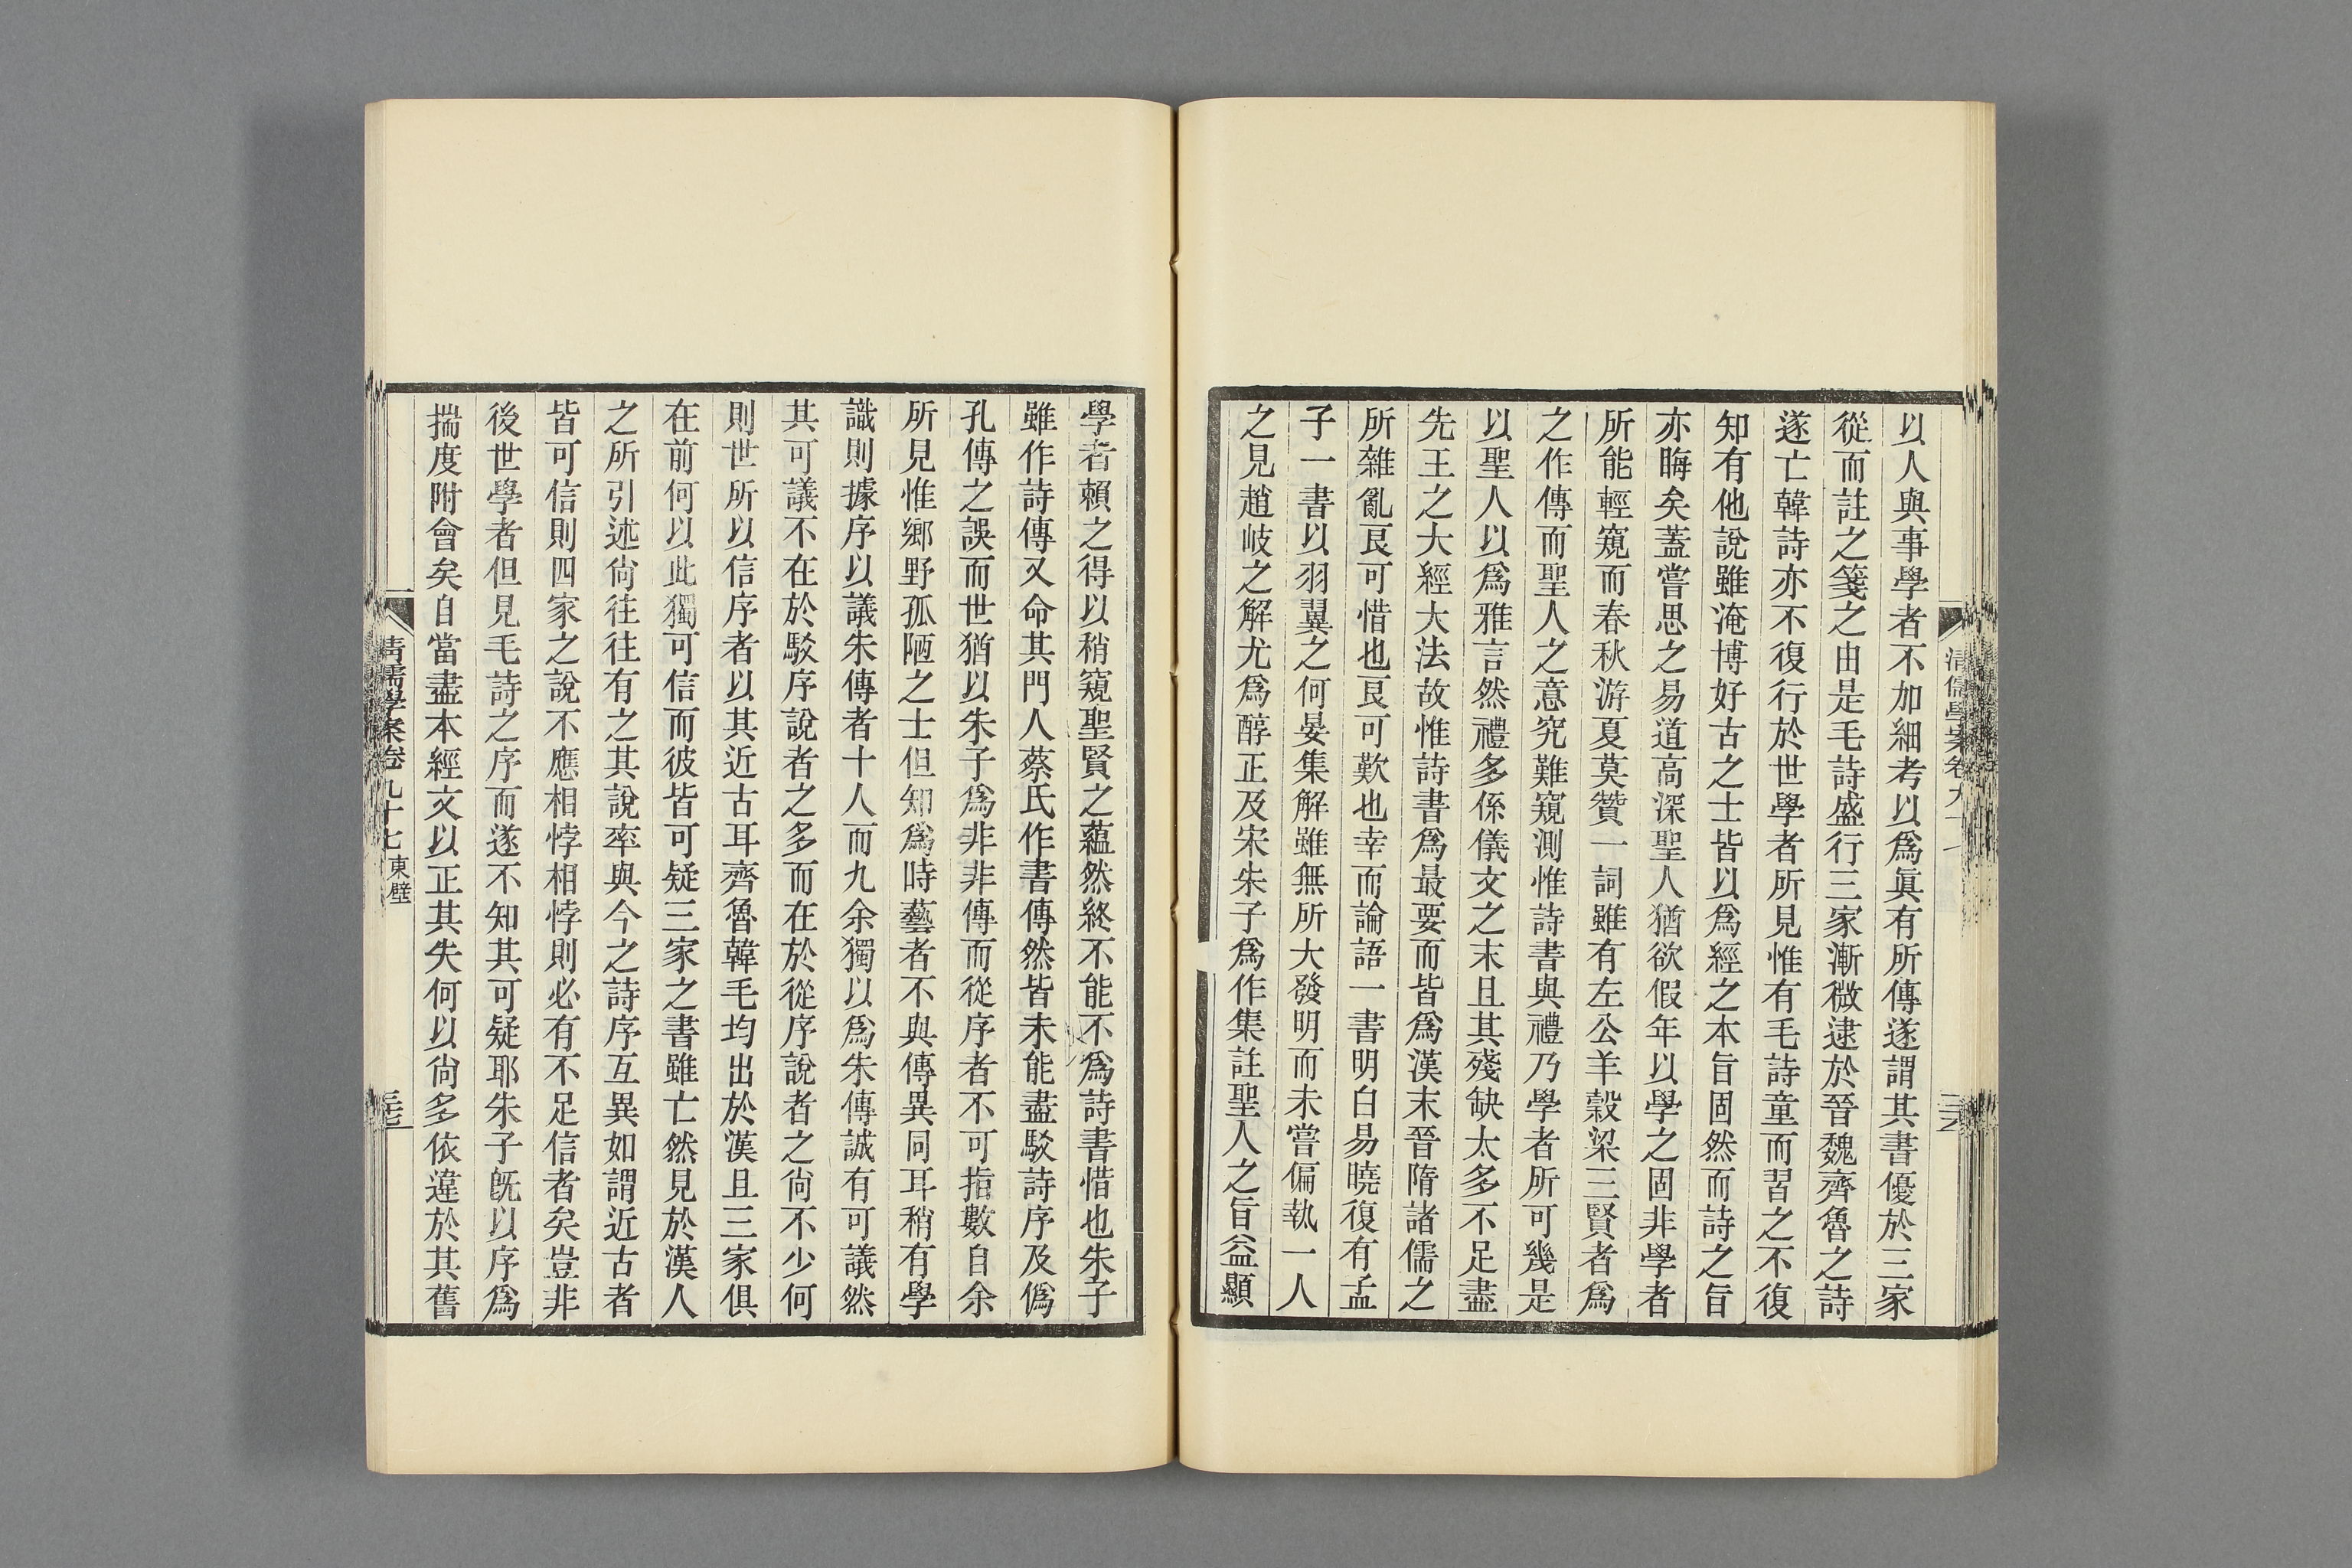 以人與事學者不加細考以爲眞有所傳遂謂其書優於三家
從而註之箋之由是毛詩盛行三家漸微逮於晉魏齊魯之詩
遂亡韓詩亦不復行於世學者所見惟有毛詩童而習之不復
知有他說雖淹博好古之士皆以爲經之本旨固然而詩之旨
亦晦矣蓋嘗思之易道高深聖人猶欲假年以學之固非學者
所能輕窺而春秋游夏莫贊一詞雖有左公羊穀梁三賢者爲
之作傳而聖人之意究難窺測惟詩書與禮乃學者所可幾是
以聖人以爲雅言然禮多係儀文之末且其殘缺太多不足盡
先王之大經大法故惟詩書爲最要而皆爲漢末晉隋諸儒之
所雜亂良可惜也良可歎也幸而論語一書明白易曉復有孟
子一書以羽翼之何晏集解雖無所大發明而未嘗偏執一人
之見趙岐之解尤爲醇正及宋朱子爲作集註聖人之旨益顯
學者賴之得以稍窺聖賢之蘊然終不能不爲詩書惜也朱子
雖作詩傳又命其門人蔡氏作書傳然皆未能盡駁詩序及僞
孔傳之誤而世猶以朱子爲非非傳而從序者不可指數自余
所見惟鄉野孤陋之士但知爲時藝者不與傳異同耳稍有學
識則據序以議朱傳者十人而九余獨以爲朱傳誠有可議然
其可議不在於駁序說者之多而在於從序說者之尙不少何
則世所以信序者以其近古耳齊魯韓毛均出於漢且三家俱
在前何以此獨可信而彼皆可疑三家之書雖亡然見於漢人
之所引述尙往往有之其說率與今之詩序互異如謂近古者
皆可信則四家之說不應相悖相悖則必有不足信者矣豈非
後世學者但見毛詩之序而遂不知其可疑耶朱子旣以序爲
揣度附會矣自當盡本經文以正其失何以尙多依違於其舊
清儒學案卷九十七 東壁